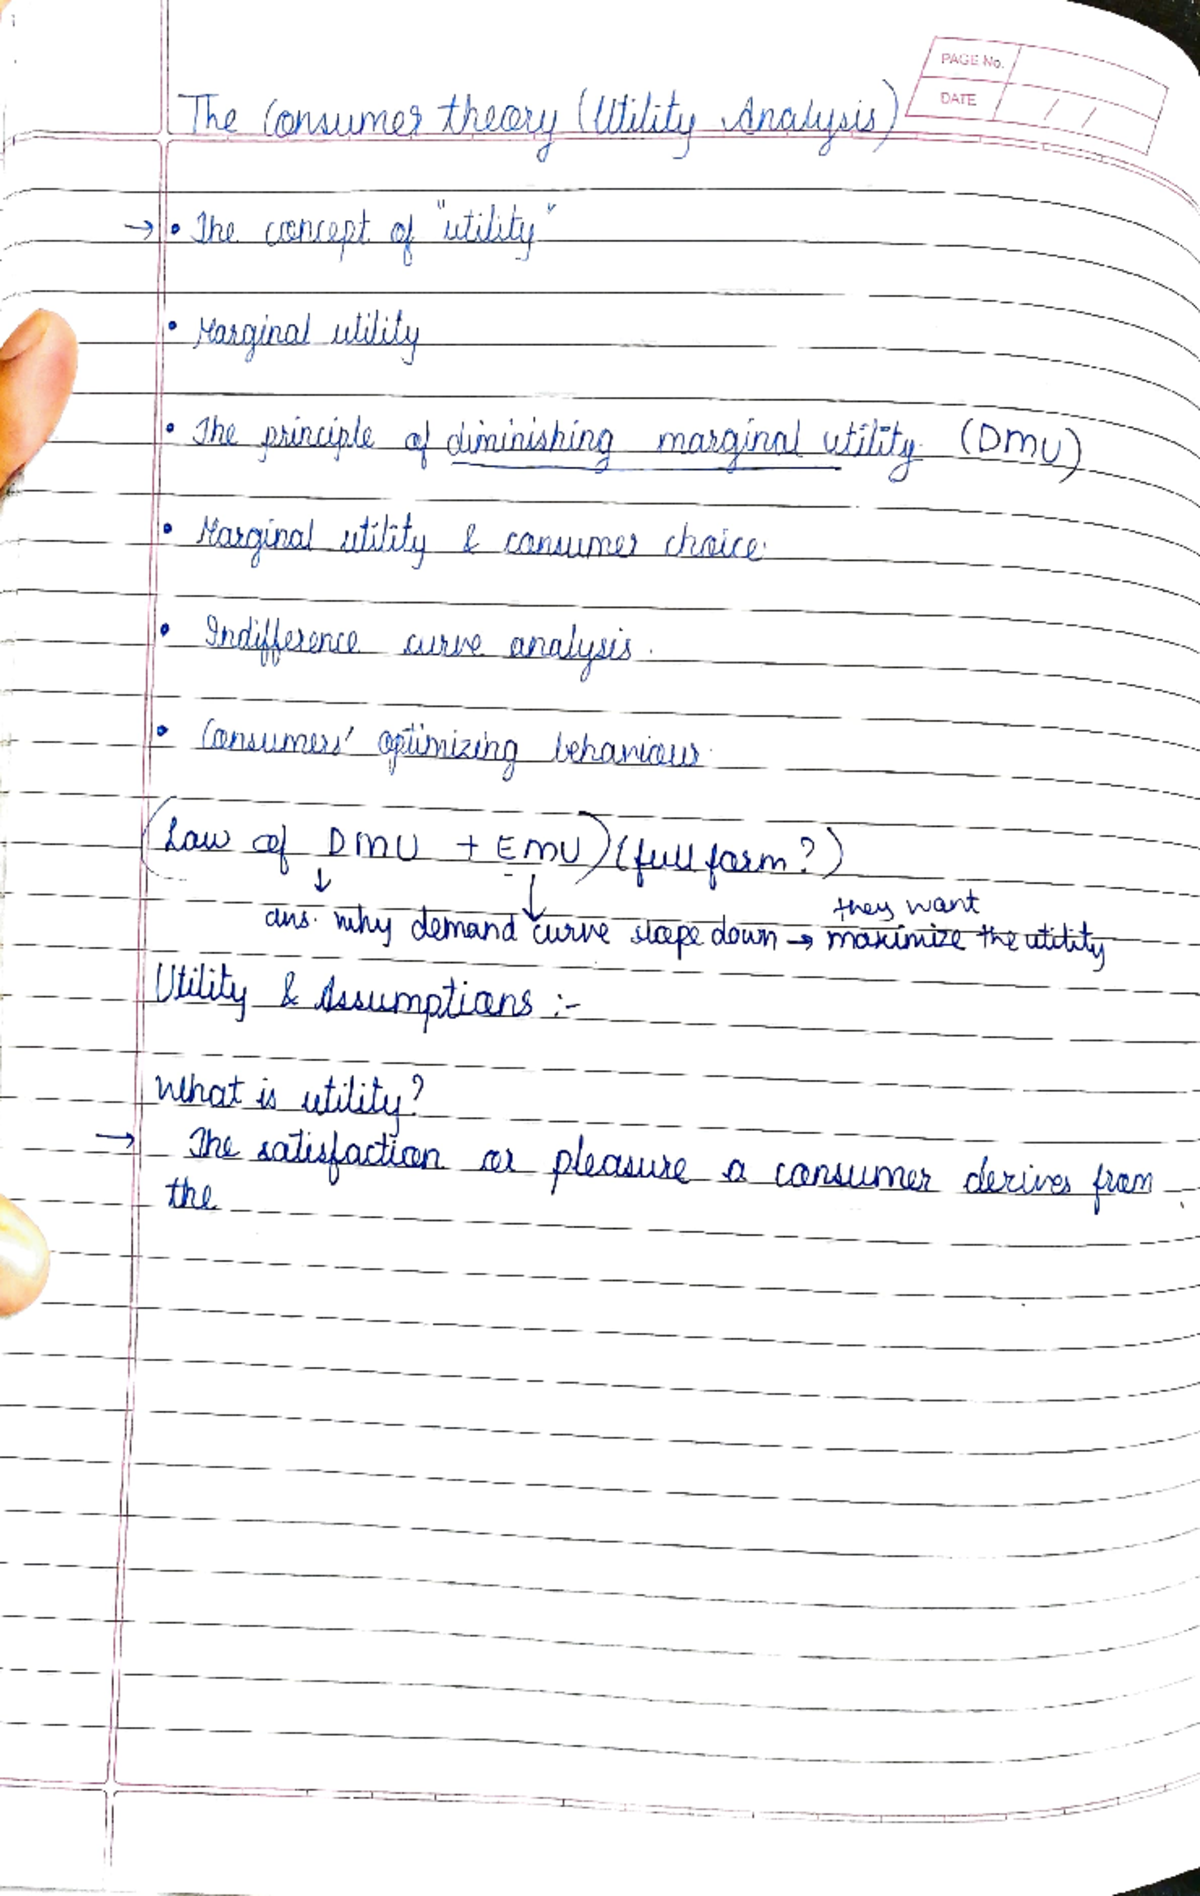 PAGE No.
DATE / /
The Consumer theory (Utility Analysis)
→ • The concept of "utility"
• Marginal utility
• The principle of diminishing marginal utility (DMU)
• Marginal utility & consumer choice.
• Indifference curve analysis.
• Consumers' optimizing behaviour.
(Law of DMU + EMU) (full form?)
↓ ↓
they want
ans. why demand curve slope down → maximize the utility
Utility & Assumptions :-
What is utility?
→ The satisfaction or pleasure a consumer derives from
the